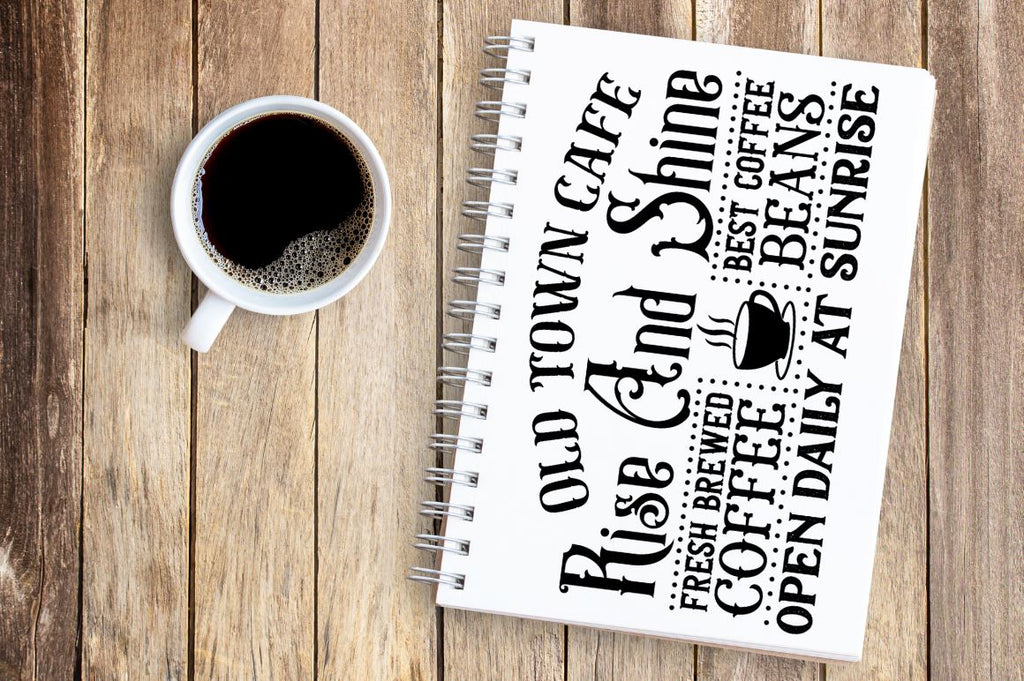 OLD TOWN CAFE
Rise And Shine
FRESH BREWED
COFFEE
BEST COFFEE
BEANS
OPEN DAILY AT SUNRISE